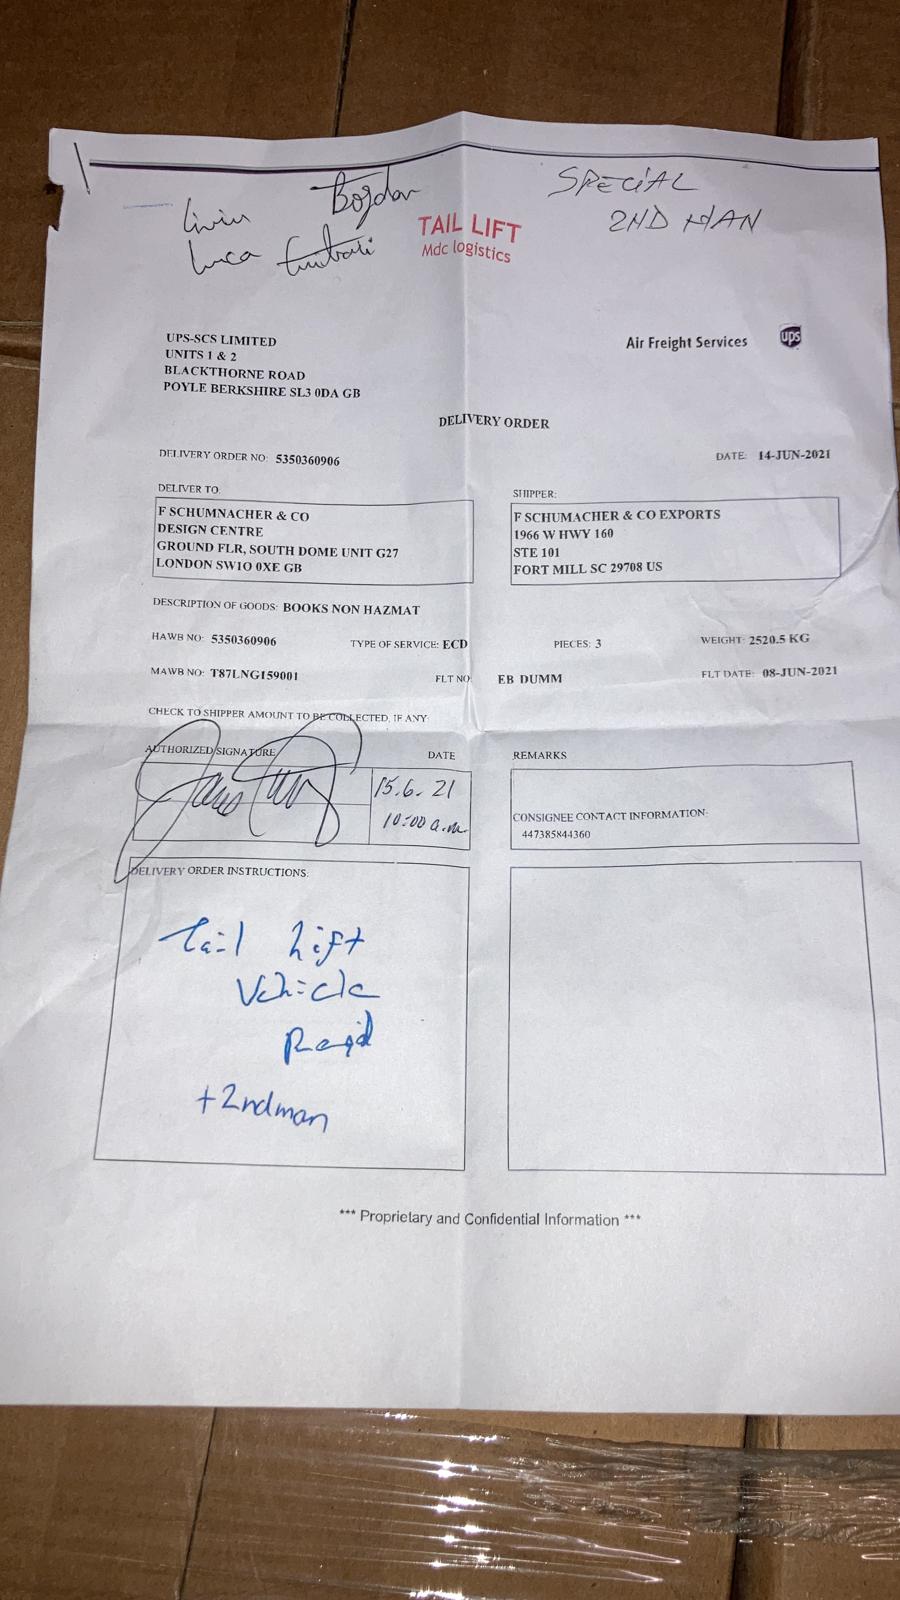 Liviu Bogdan SPECIAL
Luca 2ND MAN
TAIL LIFT
Mdc logistics
UPS-SCS LIMITED
UNITS 1 & 2
BLACKTHORNE ROAD
POYLE BERKSHIRE SL3 0DA GB
Air Freight Services ups
DELIVERY ORDER
DELIVERY ORDER NO: 5350360906 DATE: 14-JUN-2021
DELIVER TO:
F SCHUMNACHER & CO
DESIGN CENTRE
GROUND FLR, SOUTH DOME UNIT G27
LONDON SW1O 0XE GB
SHIPPER:
F SCHUMACHER & CO EXPORTS
1966 W HWY 160
STE 101
FORT MILL SC 29708 US
DESCRIPTION OF GOODS: BOOKS NON HAZMAT
HAWB NO: 5350360906 TYPE OF SERVICE: ECD PIECES: 3 WEIGHT: 2520.5 KG
MAWB NO: T87LNG159001 FLT NO: EB DUMM FLT DATE: 08-JUN-2021
CHECK TO SHIPPER AMOUNT TO BE COLLECTED, IF ANY:
AUTHORIZED SIGNATURE DATE
15.6.21
10:00 a.m.
REMARKS
CONSIGNEE CONTACT INFORMATION:
447385844360
DELIVERY ORDER INSTRUCTIONS:
Tail Lift
Vehicle
Reqd
+2nd man
*** Proprietary and Confidential Information ***